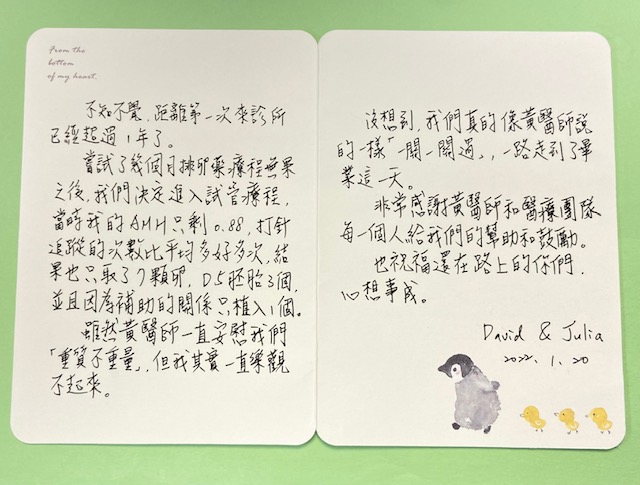 From the
bottom
of my heart.
不知不覺,距離第一次來診所
已經超過1年了。
嘗試了幾個月排卵藥療程無果
之後,我們決定進入試管療程,
當時我的AMH只剩0.88,打針
追蹤的次數比平均多好多次,結
果也只取了7顆卵,D5胚胎3個,
並且因為補助的關係只植入1個。
雖然黃醫師一直安慰我們
「重質不重量」,但我其實一直樂觀
不起來。
沒想到,我們真的像黃醫師說
的一樣「一關一關過」,一路走到了畢
業這一天。
非常感謝黃醫師和醫療團隊
每一個人給我們的幫助和鼓勵。
也祝福還在路上的你們,
心想事成。
David & Julia
2022.1.20